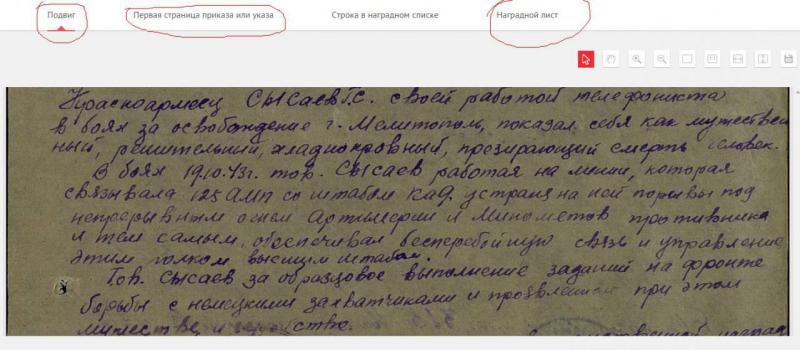 Подвиг Первая страница приказа или указа Строка в наградном списке Наградной лист
Красноармеец Сысаев Г.С. своей работой телефониста
в боях за освобождение г. Мелитополь, показал себя как мужествен
ный, решительный, хладнокровный, презирающий смерть человек.
В боях 19.10.43г. тов. Сысаев работая на линии, которая
связывала 125 АМП со штабом КАД, устраняя на ней порывы под
непрерывным огнем артиллерии и минометов противника
и тем самым, обеспечивал бесперебойную связь и управление
этим полком высшим штабом.
Тов. Сысаев за образцовое выполнение заданий на фронте
борьбы с немецкими захватчиками и проявленное при этом
мужество и геройство.